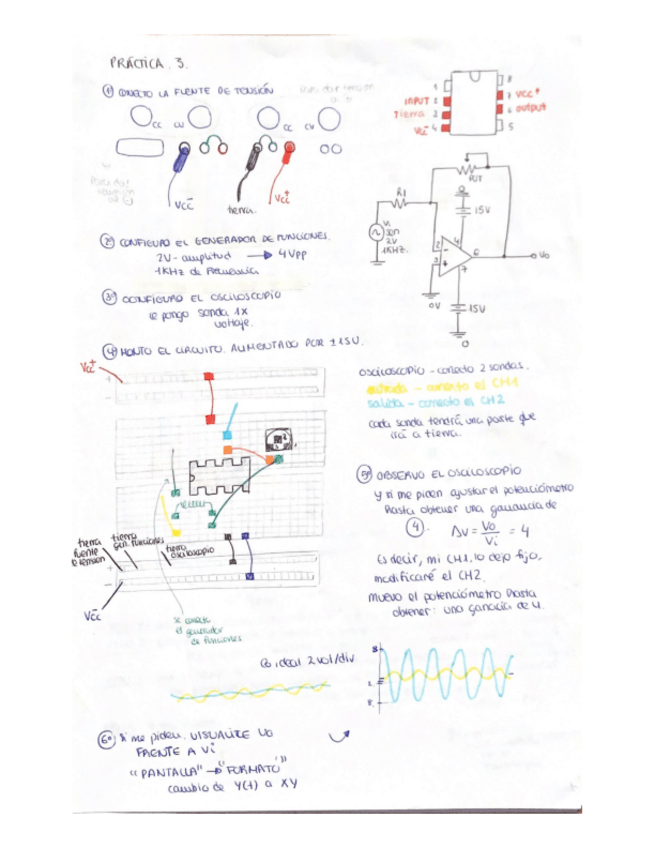 PRÁCTICA 3.
1º CONECTO LA FUENTE DE TENSIÓN
Para dar tensión
CC CV CC CV
Para dar
Vcc-
tierra.
Vcc+
2º CONFIGURO EL GENERADOR DE FUNCIONES.
2V - amplitud → 4Vpp
1KHz de frecuencia
3º CONFIGURO EL OSCILOSCOPIO
le pongo sonda 1x
voltaje.
4º MONTO EL CIRCUITO. ALIMENTADO POR ±15V.
Vcc+
+
-
tierra
fuente
tensión
tierra
gen. funciones
tierra
osciloscopio
-
+
Vcc-
se conecta
el generador
de funciones
1
INPUT 2
Tierra 3
Vcc- 4
8
7 Vcc+
6 output
5
R1
POT
15V
Vi
2V
1KHz.
2
3
4
6
7
Vo
0V
15V
0
osciloscopio - conecto 2 sondas.
entrada - conecto el CH1
salida - conecto el CH2
cada sonda tendrá una parte que
irá a tierra.
5º OBSERVO EL OSCILOSCOPIO
y si me piden ajustar el potenciómetro
hasta obtener una ganancia de
4. Av = Vo/Vi = 4
Es decir, mi CH1, lo dejo fijo,
modificaré el CH2.
muevo el potenciómetro hasta
obtener una ganacia de 4.
ideal 2 vol/div
8
6º Si me piden. VISUALICE VO
FRENTE A Vi
"PANTALLA" → "FORMATO"
cambio de Y(t) a XY